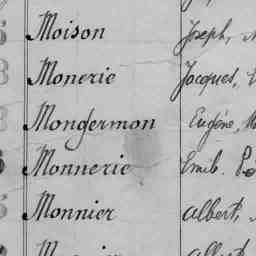 Moison Joseph,
Monerie Jacques,
Mongermon Eugène,
Monnerie Emil.
Monnier Albert,